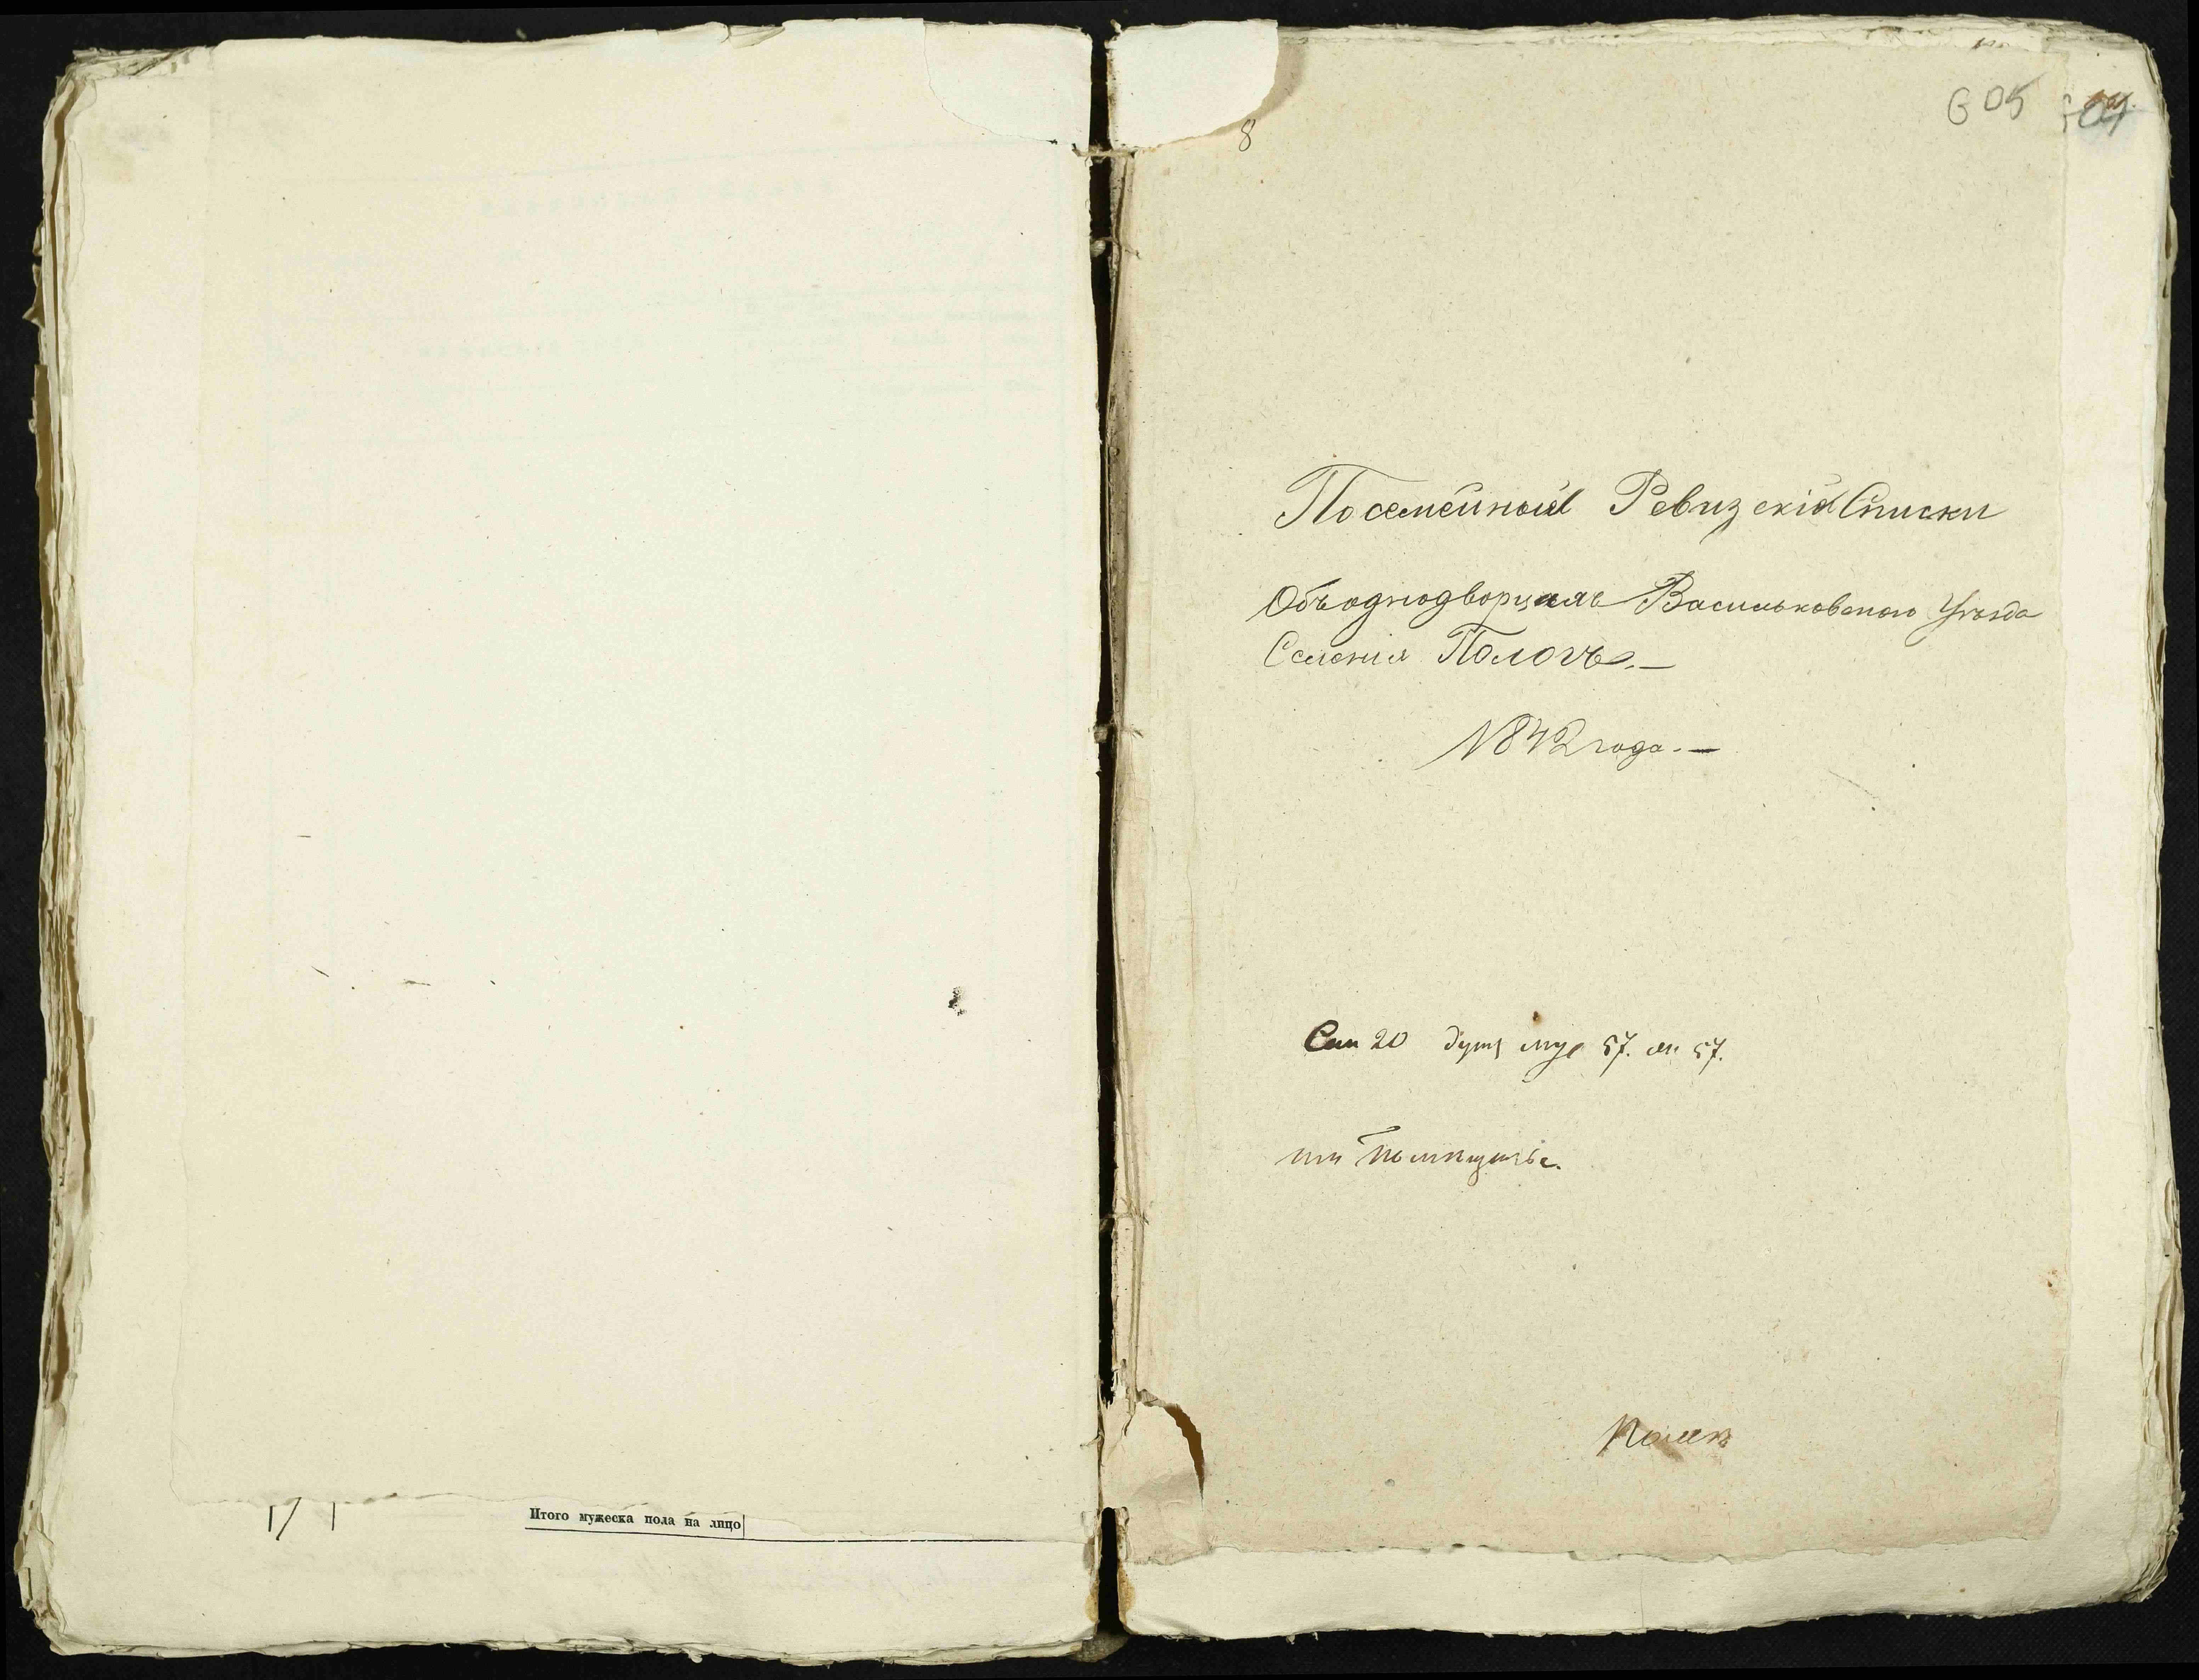 Итого мужеска пола на лицо
605
8
Посемейныя Ревизскія Списки
Объ однодворцахъ Васильковского Уѣзда
Селенія Пологъ.—
1842 года.—
Сем 20 душ муж 57. ж 57.